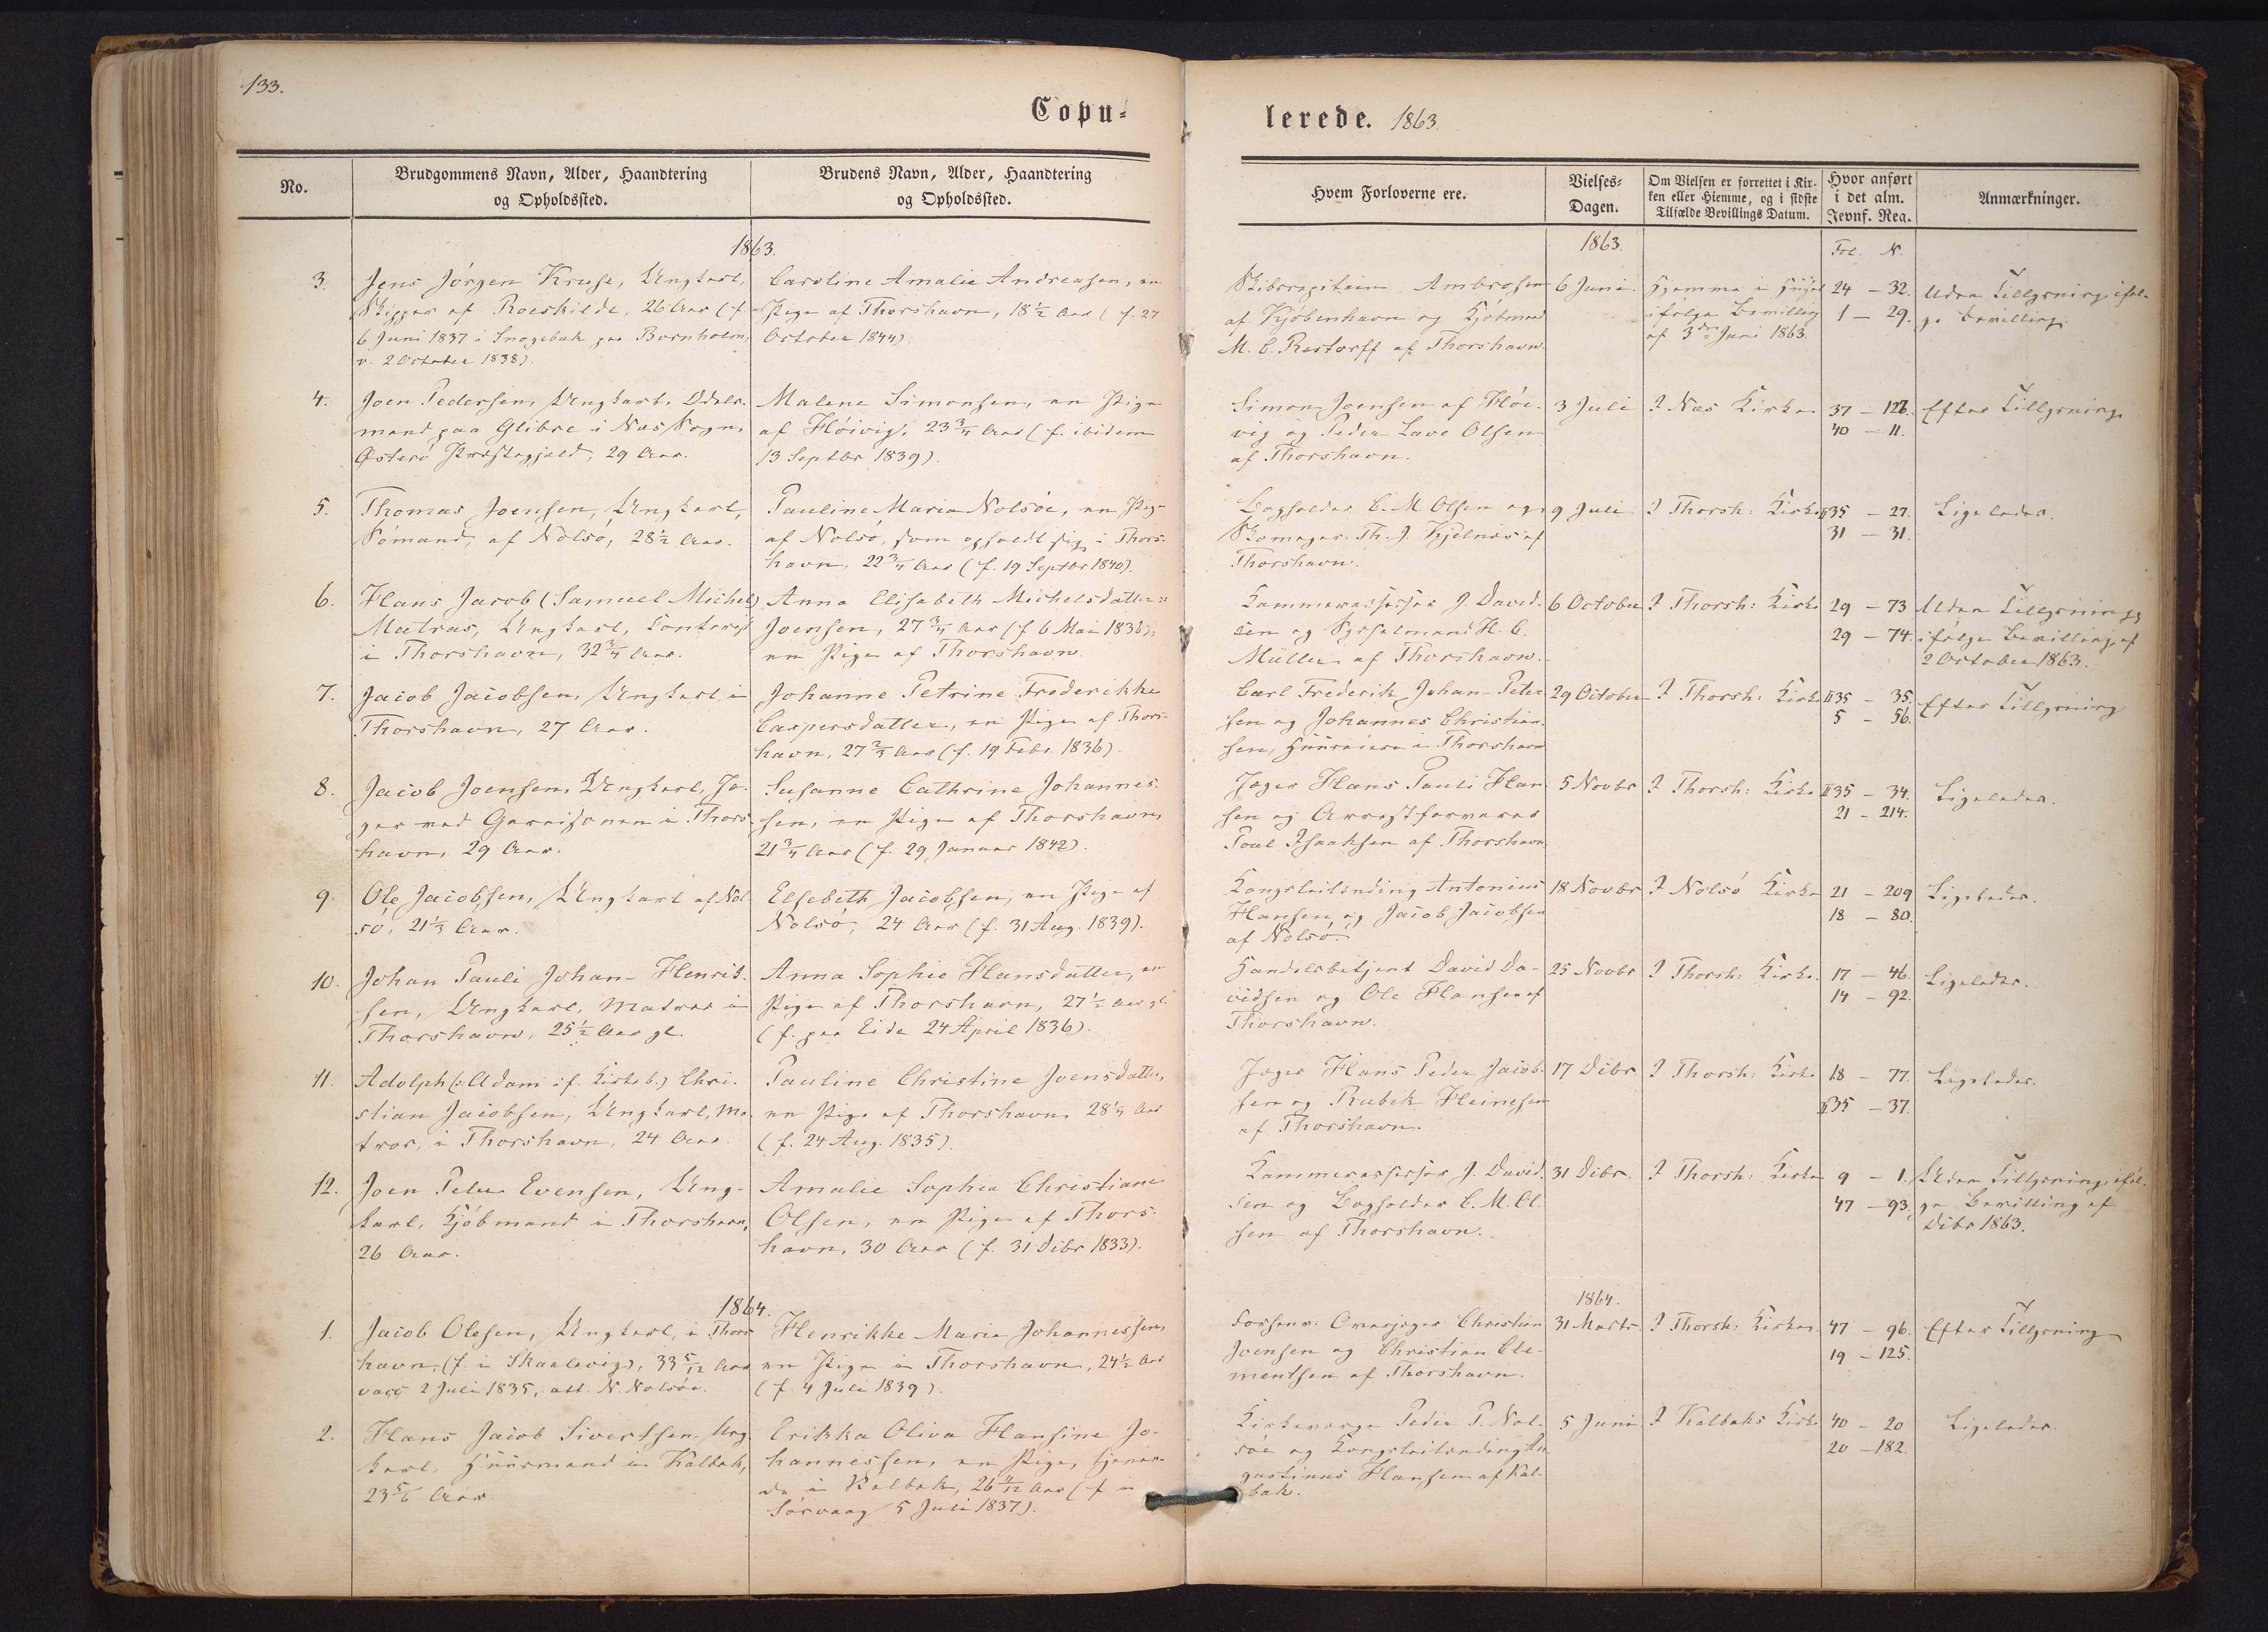 133.
Copu-
lerede. 1863.
No.
Brudgommens Navn, Alder, Haandtering
og Opholdssted.
Brudens Navn, Alder, Haandtering
og Opholdssted.
Hvem Forloverne ere.
Vielses-
Dagen.
Om Vielsen er forrettet i Kir-
ken eller Hiemme, og i sidste
Tilfælde Bevillings Datum.
Hvor anført
i det alm.
Jevnf. Reg.
Anmærkninger.
1863.
1863.
Fol. N.
3.
Jens Jörgen Kruse, Ungkarl,
Skipper af Roeskilde, 26 Aar (f.
6 Juni 1837 i Snogebek paa Bornholm,
v. 2 October 1838).
Caroline Amalie Andreasen, en
Pige af Thorshavn, 18½ Aar (f. 27
October 1844).
Skibscapitain Ambrosen
af Kjöbenhavn og Kjöbmand
M. C. Restorff af Thorshavn.
6 Juni.
Hjemme i Huset
ifölge Bevilling
af 3die Juni 1863.
24 - 32.
1 - 29.
Uden Tillysning iföl-
ge Bevilling.
4.
Joen Pedersen, Ungkarl, Odels-
mand paa Glibre i Næs Sogn,
Österö Præstegjeld, 29 Aar.
Malene Simonsen, en Pige
af Höivig, 23¾ Aar (f. ibidem
13 Septbr 1839).
Simon Joensen af Höi-
vig og Peder Lave Olsen
af Thorshavn.
3 Juli
I Næs Kirke
37 - 126.
40 - 11.
Efter Tillysning.
5.
Thomas Joensen, Ungkarl,
Sömand, af Nolsö, 28½ Aar.
Pauline Maria Nolsöe, en Pige
af Nolsö, som opholdt sig i Thors-
havn, 22¾ Aar (f. 19 Septbr 1840).
Bogholder C. M. Olsen og
Skomager Th. J. Kjelnæs af
Thorshavn.
9 Juli
I Thorsh: Kirke
II 35 - 27.
31 - 31.
Ligeledes.
6.
Hans Jacob (Samuel Michel)
Matras, Ungkarl, Contorist
i Thorshavn, 32¾ Aar.
Anna Elisabeth Michelsdatter
Joensen, 27¾ Aar (f. 6 Mai 1836),
en Pige af Thorshavn.
Kammerassessor J. David-
sen og Sysselmand H. C.
Müller af Thorshavn.
6 October
I Thorsh: Kirke
29 - 73
29 - 74.
Uden Tillysning
ifölge Bevilling af
2 October 1863.
7.
Jacob Jacobsen, Ungkarl i
Thorshavn, 27 Aar.
Johanne Petrine Frederikke
Caspersdatter, en Pige af Thors-
havn, 27⅔ Aar (f. 19 Febr. 1836).
Carl Frederik Johan Peter-
sen og Johannes Christian-
sen, Huuseiere i Thorshavn
29 October
I Thorsh: Kirke
II 35 - 35.
5 - 56.
Efter Tillysning
8.
Jacob Joensen, Ungkarl, Jæ-
ger ved Garnisonen i Thors-
havn, 29 Aar.
Susanne Cathrine Johannes-
sen, en Pige af Thorshavn,
21¾ Aar (f. 29 Januar 1842).
Jæger Hans Pauli Han-
sen og Arrestforvarer
Poul Isaaksen af Thorshavn
5 Novbr
I Thorsh: Kirke
II 35 - 34.
21 - 214.
Ligeledes.
9.
Ole Jacobsen, Ungkarl af Nol-
sö, 21⅓ Aar.
Elsebeth Jacobsen, en Pige af
Nolsö, 24 Aar (f. 31 Aug. 1839).
Kongsleilænding Antonius
Hansen og Jacob Jacobsen
af Nolsö.
18 Novbr
I Nolsö Kirke
21 - 209
18 - 80.
Ligeledes.
10.
Johan Pauli Johan-Henrik-
sen, Ungkarl, Matros i
Thorshavn, 25½ Aar gl.
Anna Sophie Hansdatter, en
Pige af Thorshavn, 27½ Aar gl.
(f. paa Eide 24 April 1836).
Handelsbetjent David Da-
vidsen og Ole Hansen af
Thorshavn.
25 Novbr
I Thorsh: Kirke.
17 - 46.
14 - 92.
Ligeledes.
11.
Adolph (o: Adam if. Kirkeb.) Chri-
stian Jacobsen, Ungkarl, Ma-
tros, i Thorshavn, 24 Aar.
Pauline Christine Joensdatter,
en Pige af Thorshavn, 28¼ Aar
(f. 24 Aug. 1835)
Jæger Hans Peder Jacob-
sen og Rubek Heinesen
af Thorshavn.
17 Dcbr
I Thorsh: Kirke
18 - 77.
II 35 - 37.
Ligeledes.
12.
Joen Peter Evensen, Ung-
karl, Kjöbmand i Thorshavn,
26 Aar.
Amalie Sophie Christiane
Olsen, en Pige af Thors-
havn, 30 Aar (f. 31 Dcbr 1833).
Kammerassessor J. David-
sen og Bogholder C. M. Ol-
sen af Thorshavn.
31 Dcbr.
I Thorsh: Kirke
9 - 1.
47 - 93.
Uden Tillysning iföl-
ge Bevilling af
Dcbr 1863.
1864.
1864.
1.
Jacob Olesen, Ungkarl, i Thors-
havn, (f. i Skaalevig), 33 5/12 Aar
vacc 2 Juli 1835, att. N. Nolsöe.
Henrikke Marie Johannessen,
en Pige i Thorshavn, 24½ Aar
(f. 4 Juli 1839).
Overjæger Christian
Joensen og Christian Cle-
mentsen af Thorshavn.
31 Marts
I Thorsh: Kirke
47 - 96.
19 - 125.
Efter Tillysning
2.
Hans Jacob Sivertsen, Ung-
karl, Huusmand i Kalbak,
23 5/6 Aar
Erikka Oliva Hansine Jo-
hannessen, en Pige, tjenen-
de i Kalbak, 26 11/12 Aar (f. i
Sörvaag 5 Juli 1837).
Kirkeværge Peder P. Nol-
söe og Kongsleilænding Au-
gustinus Hansen af Kal-
bak.
5 Juni
I Kalbaks Kirke
40 - 20
20 - 182.
Ligeledes.